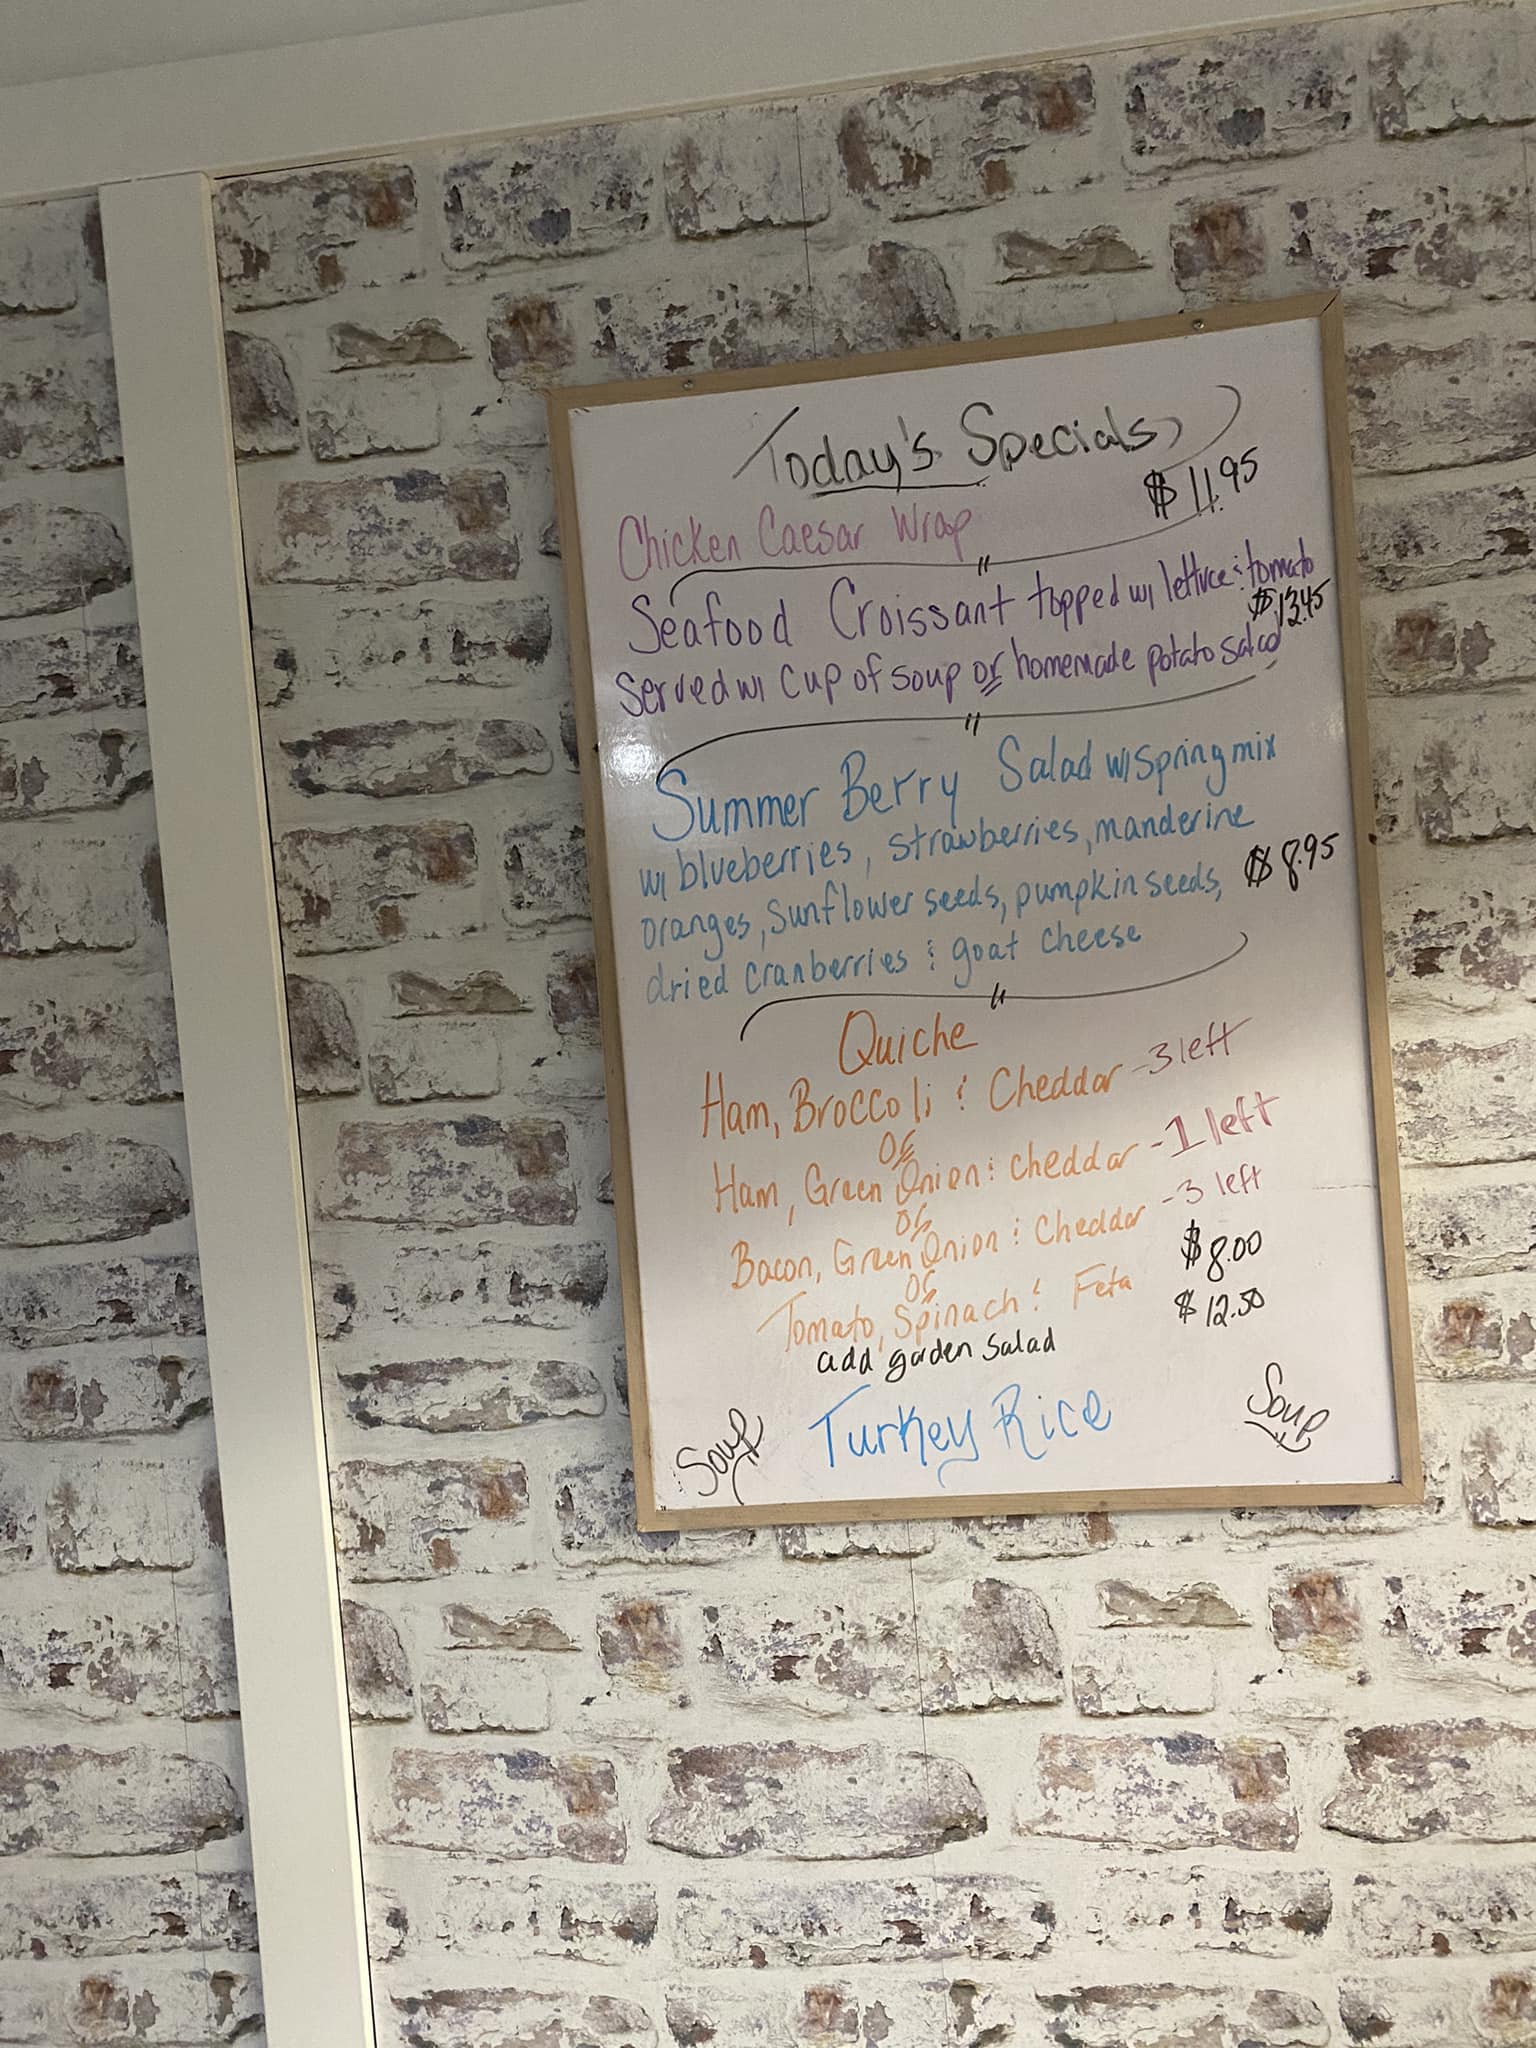 Today's Specials
Chicken Caesar Wrap $11.95
Seafood Croissant topped w/ lettuce & tomato
$13.45
Served w/ cup of soup or homemade potato salad
Summer Berry Salad w/ spring mix
w/ blueberries, strawberries, manderine
oranges, sunflower seeds, pumpkin seeds, $8.95
dried cranberries & goat cheese
Quiche
Ham, Broccoli & Cheddar - 3 left
or
Ham, Green Onion & cheddar - 1 left
or
Bacon, Green Onion & Cheddar - 3 left
or
Tomato, Spinach & Feta $8.00
add garden salad $12.50
Soup Turkey Rice Soup